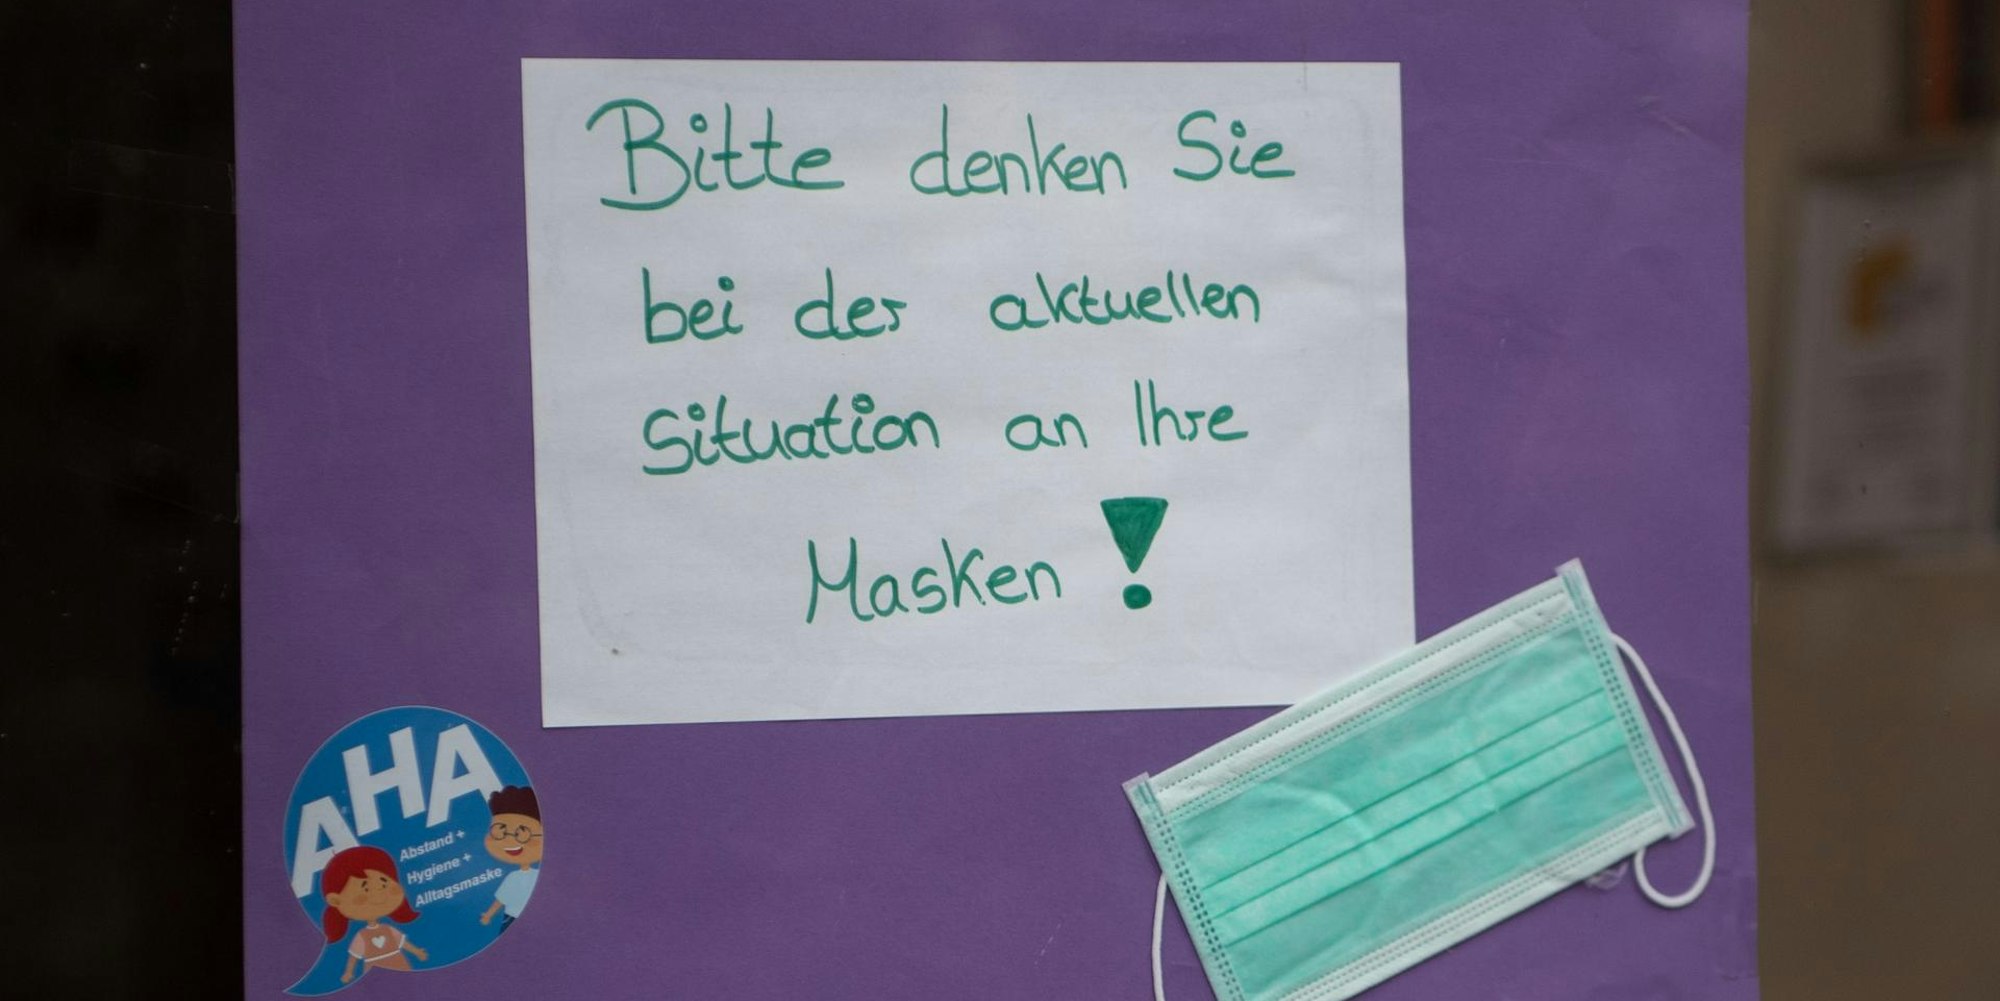 Bitte denken Sie
bei der aktuellen
Situation an Ihre
Masken!
AHA
Abstand +
Hygiene +
Alltagsmaske